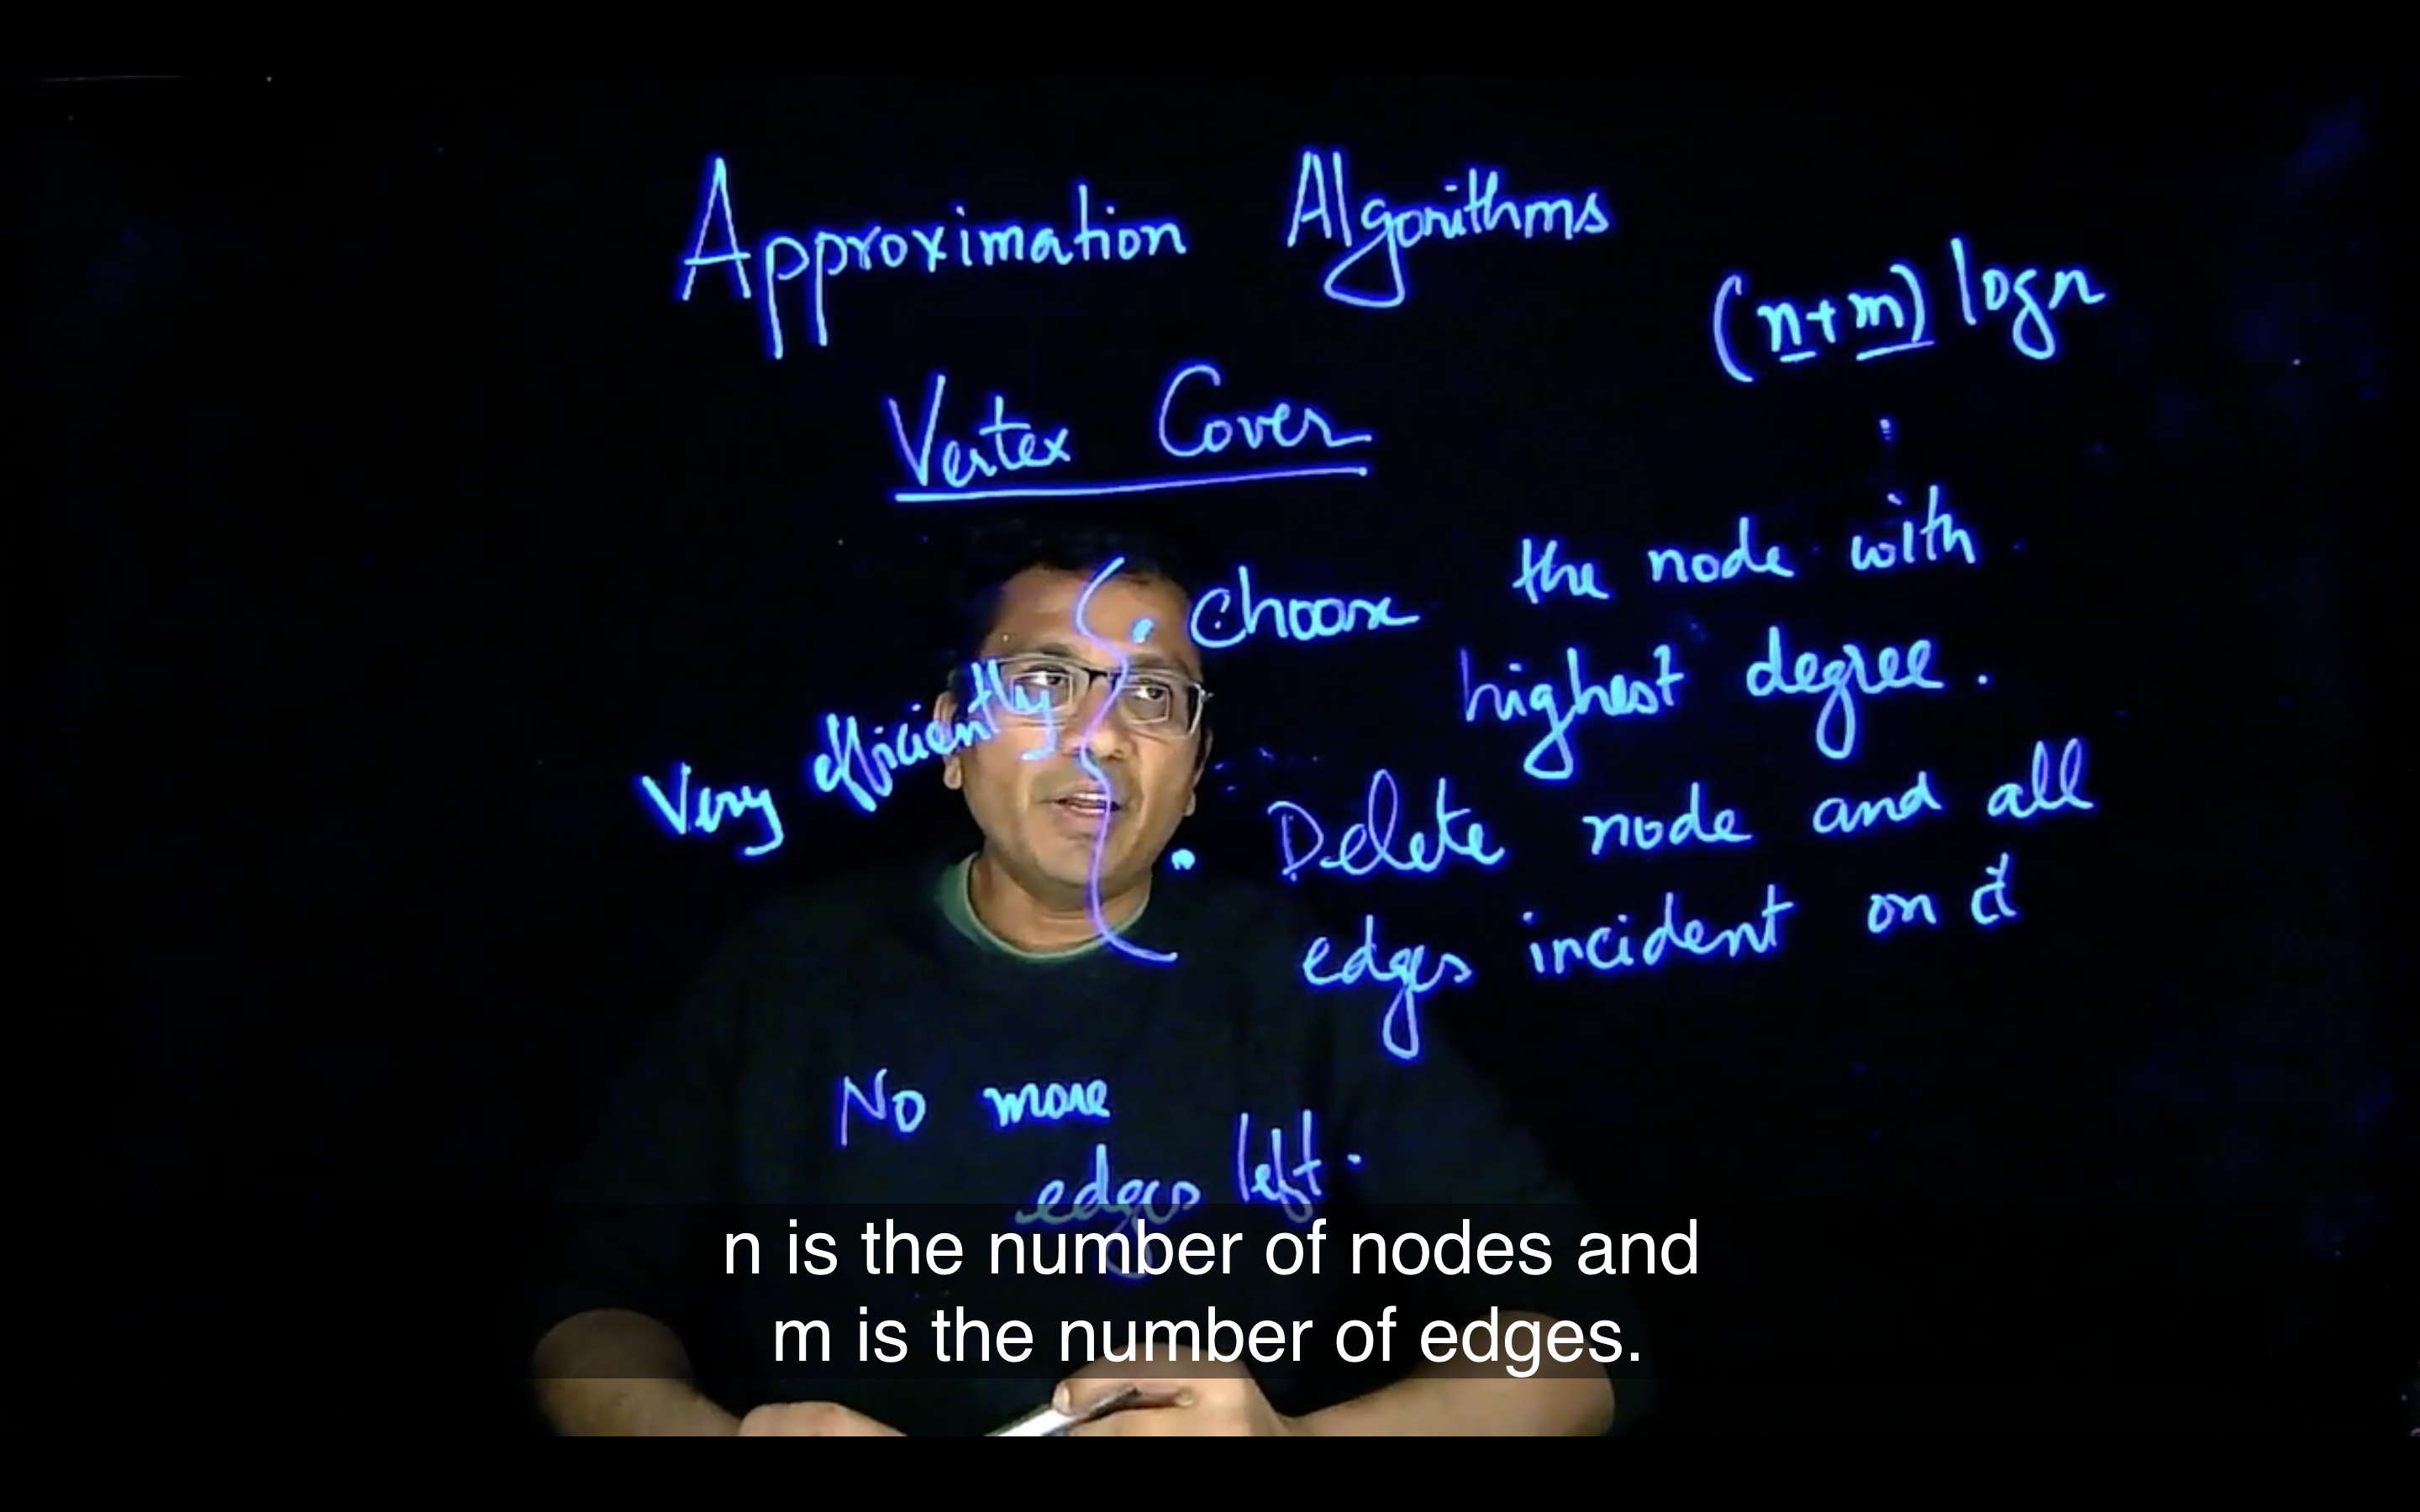 Approximation Algorithms
(n+m) logn
Vertex Cover
• Choose the node with
highest degree.
Very efficiently
• Delete node and all
edges incident on it
No more
edges left.
n is the number of nodes and
m is the number of edges.